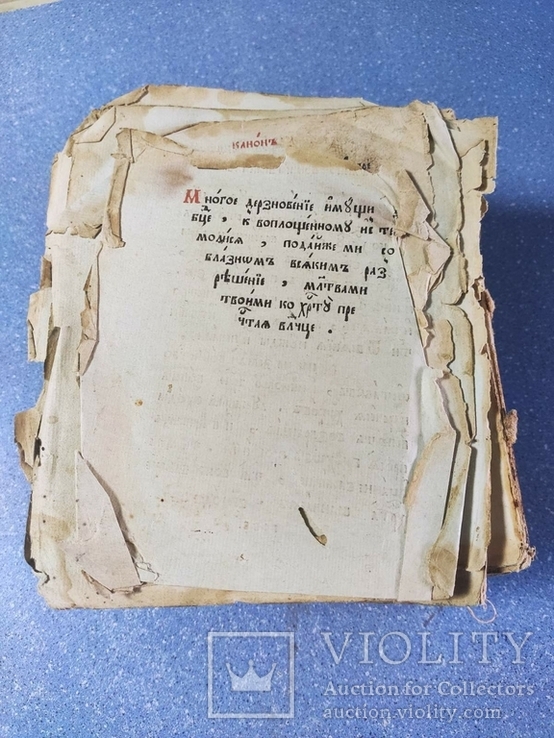 канѡ́нъ
Мно́гое дерзнове́нїе и҆мꙋ́щи
бц҃е, к воплоще́нномꙋ ис ти
моли́сѧ, пода́йже ми со
бла́зномъ всѧ́кимъ раз
рѣше́нїе, мл҃твами
твои́ми ко хрⷭ҇тꙋ̀ пре
чⷭ҇таѧ влⷣчце.
VIOLITY
Auction for Collectors
auction.violity.com